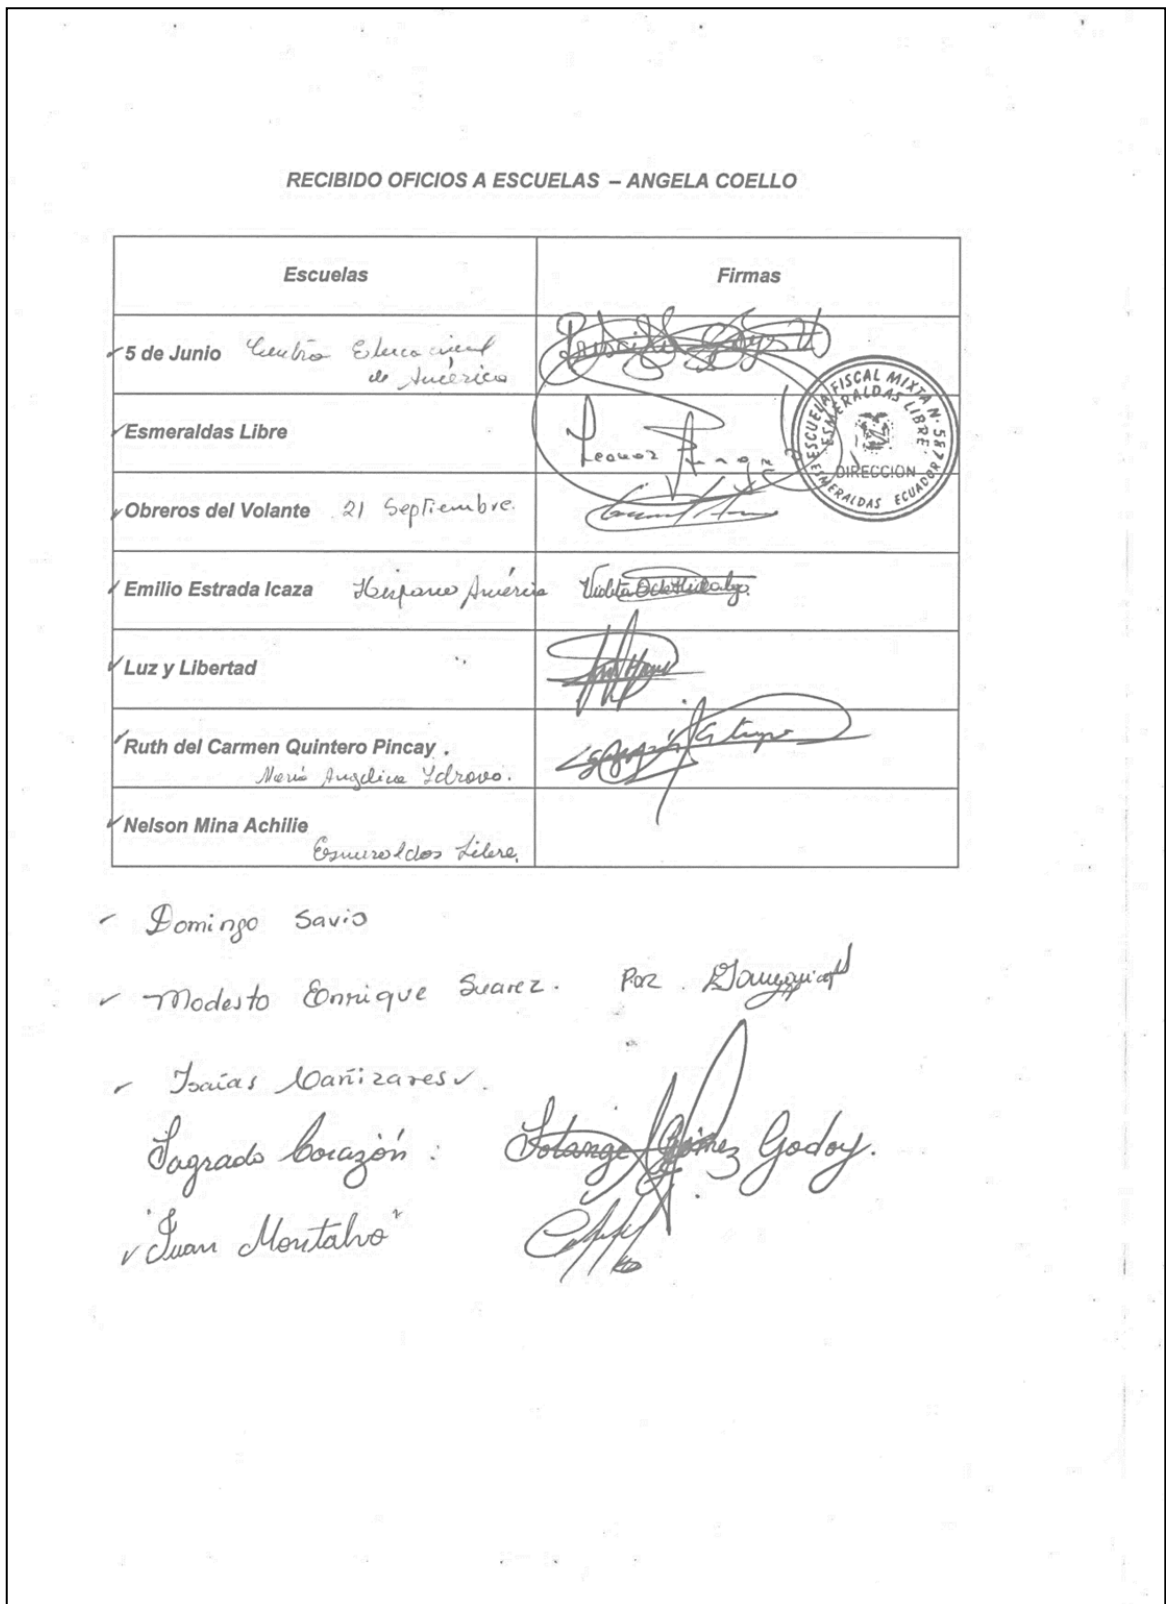 RECIBIDO OFICIOS A ESCUELAS – ANGELA COELLO
Escuelas
Firmas
5 de Junio Centro Educacional
de América
Esmeraldas Libre
Leonor
ESCUELA FISCAL MIXTA N. 587
ESMERALDAS LIBRE
DIRECCION
ESMERALDAS ECUADOR
Obreros del Volante 21 Septiembre.
Emilio Estrada Icaza Hispano América Violeta
Luz y Libertad
Ruth del Carmen Quintero Pincay .
María Angélica Idrovo.
Nelson Mina Achilie
Esmeraldas Libre.
Domingo Savio
Modesto Enrique Suarez. Por.
Isaías Cañizares
Sagrado Corazón : Solange Gómez Godoy.
"Juan Montalvo"